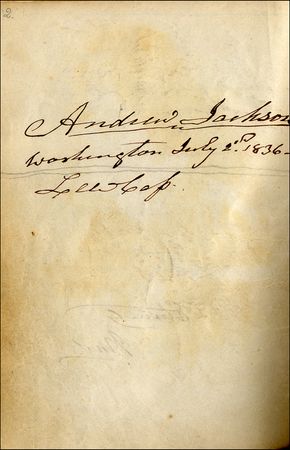 2.
Andrew Jackson
Washington July 2nd. 1836–